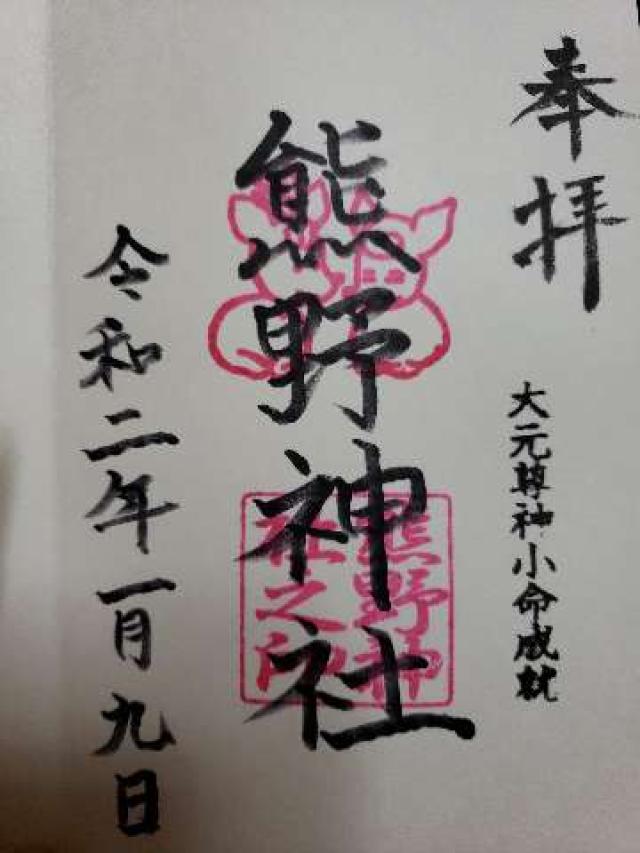 奉拝
大元尊神小命成就
熊野神社
熊野神
社之印
令和二年一月九日